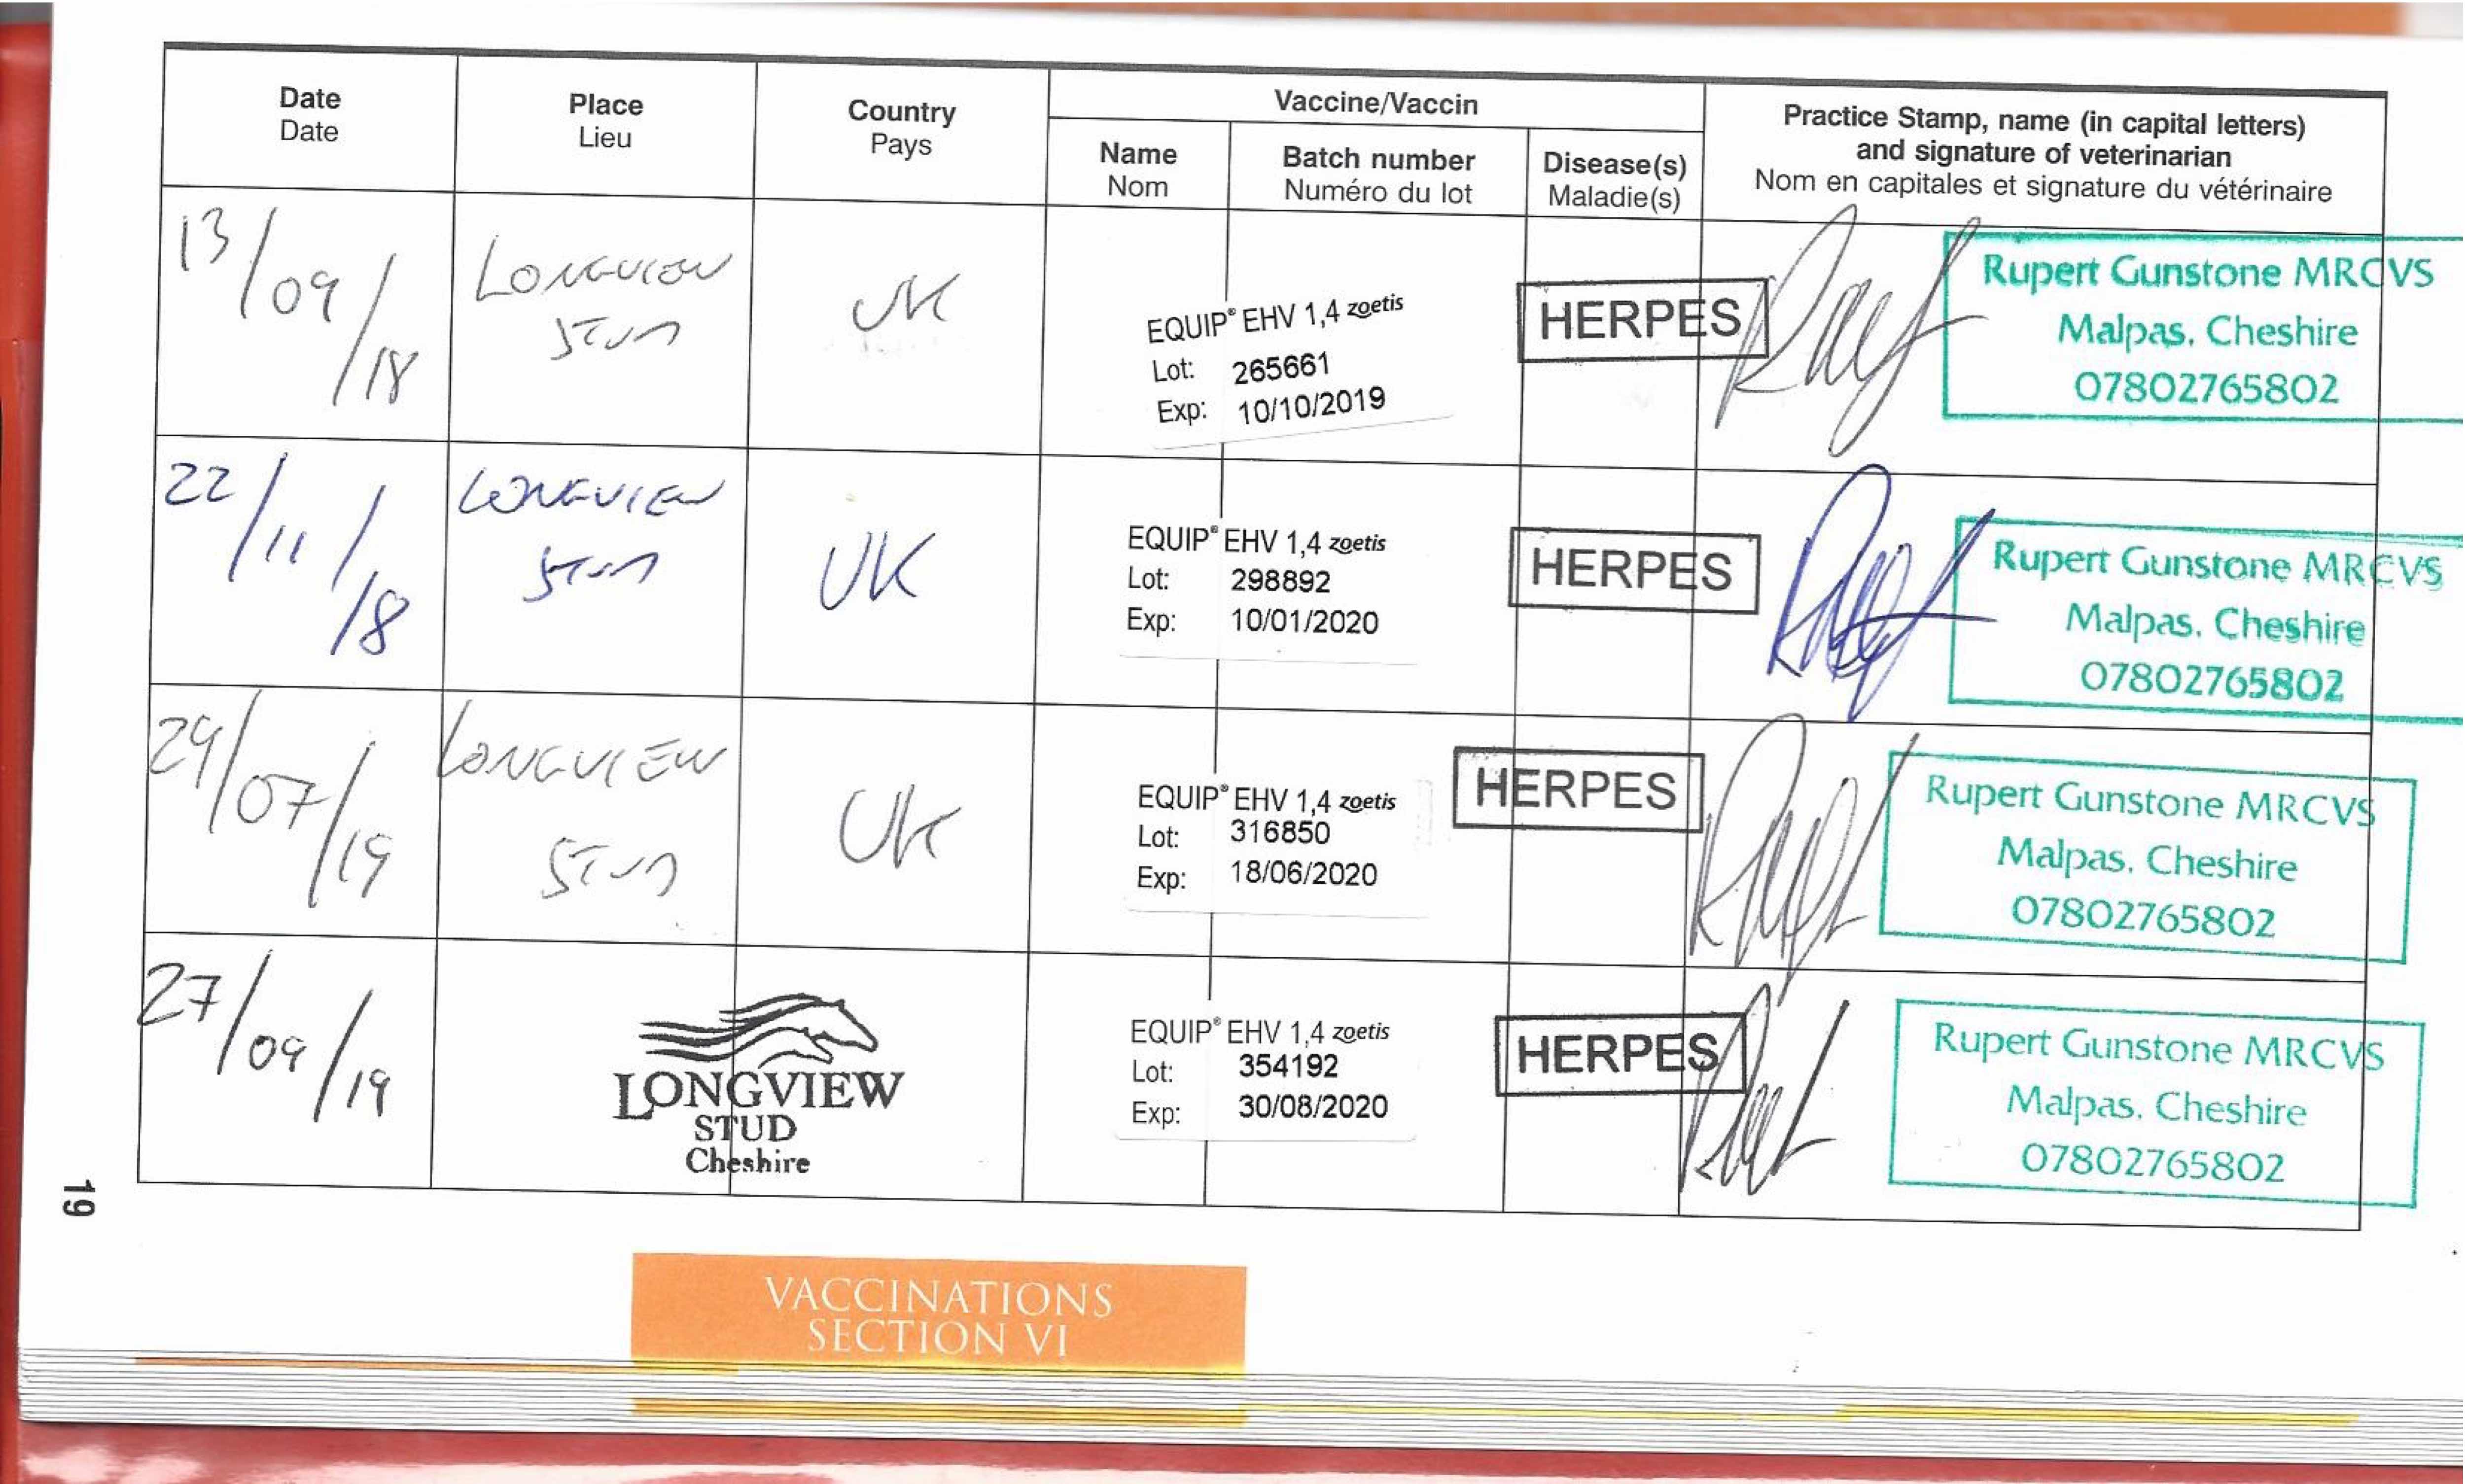 Date
Date
Place
Lieu
Country
Pays
Vaccine/Vaccin
Name
Nom
Batch number
Numéro du lot
Disease(s)
Maladie(s)
Practice Stamp, name (in capital letters)
and signature of veterinarian
Nom en capitales et signature du vétérinaire
13/09/18
LONGVIEW
STUD
UK
EQUIP® EHV 1,4 zoetis
Lot: 265661
Exp: 10/10/2019
HERPES
Rupert Gunstone MRCVS
Malpas, Cheshire
07802765802
22/11/18
LONGVIEW
STUD
UK
EQUIP® EHV 1,4 zoetis
Lot: 298892
Exp: 10/01/2020
HERPES
Rupert Gunstone MRCVS
Malpas, Cheshire
07802765802
29/07/19
LONGVIEW
STUD
UK
EQUIP® EHV 1,4 zoetis
Lot: 316850
Exp: 18/06/2020
HERPES
Rupert Gunstone MRCVS
Malpas, Cheshire
07802765802
27/09/19
LONGVIEW
STUD
Cheshire
EQUIP® EHV 1,4 zoetis
Lot: 354192
Exp: 30/08/2020
HERPES
Rupert Gunstone MRCVS
Malpas, Cheshire
07802765802
19
VACCINATIONS
SECTION VI